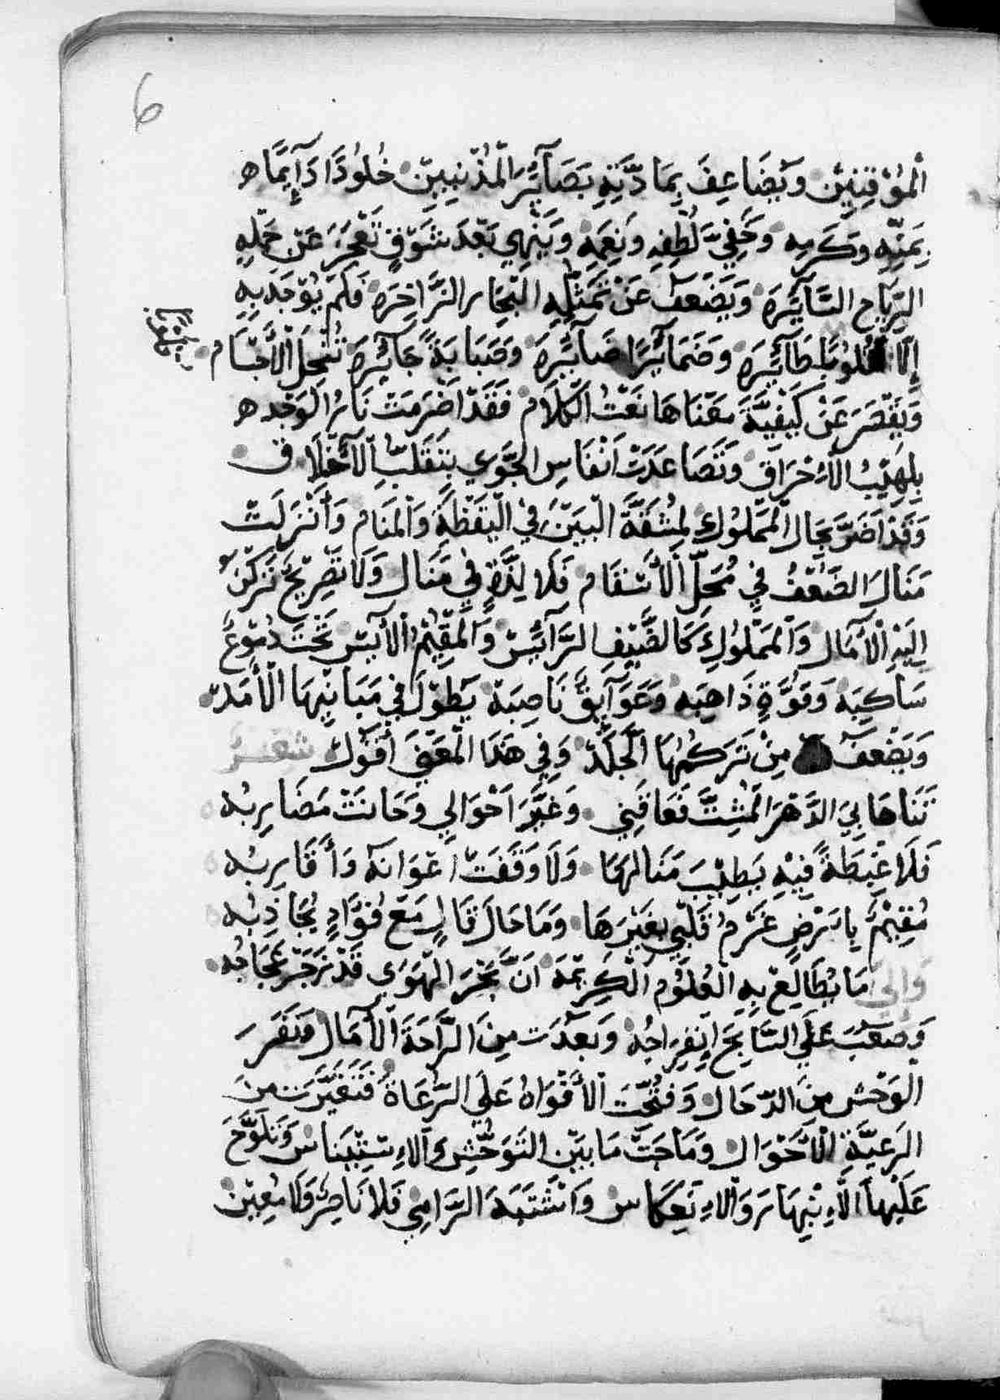 6
الْمُؤْمِنِيْنَ وَيُضَاعِفَ بِمَادَّتِهِ بَصَآئِرَ الْمُذْنِبِيْنَ خُلُوْدًا دَآئِمًا ه
بِمَنِّهِ وَكَرَمِهِ وَخَفِيِّ لُطْفِهِ وَنِعَمِهِ وَيُنْهِي بَعْدَ شَوْقٍ تَعْجَزُ عَنْ حَمْلِهِ
الرِّيَاحُ السَّآئِرَهْ وَيَضْعَفُ عَنْ تَمَثُّلِهِ الْبِحَارُ الزَّاخِرَهْ فَكَمْ يُوْجَدْ بِهِ
إِلَّا قُلُوْبًا طَآئِرَهْ وَضَمَآئِرًا ضَآئِرَهْ وَصَبَابَةً جَآئِرَهْ تُنْحِلُ الْأَجْسَامْ
وَيَقْصُرُ عَنْ كَيْفِيَّةِ مَعْنَاهَا نَعْتُ الْكَلَامْ فَقَدْ اَضْرَمَتْ نَارُ الْوَجْدِ ه
بِلَهِيْبِ الْاِحْرَاقْ وَتَصَاعَدَتْ اَنْفَاسُ الْجَوَى بِتَقَلُّبِ الْأَخْلَاقْ
وَقَدْ اَضَرَّ بِحَالِ الْمَمْلُوْكِ لِمَشَقَّةِ الْبَيْنِ فِي الْيَقْظَةِ وَالْمَنَامْ وَأَنْزَلَتْ
مَنَالَ الضَّعْفِ فِي مَحَلِّ الْأَسْقَامْ فَلَا لَذَّةَ فِي مَنَالْ وَلَا تَفْرِيْجَ تَرْكَنُ
اِلَيْهِ الْاَمَالْ وَالْمَمْلُوْكُ كَالضَّيْفِ الرَّآئِسْ وَالْمُقِيْمِ الْآيِسْ تَحْتَ دُمُوْعٍ
سَاكِبَهْ وَقُوَّةٍ ذَاهِبَهْ وَعَوَآئِقَ نَاصِبَهْ يَطُوْلُ فِي مَبَانِيْهَا الْأَمَدْ
وَيَضْعَفُ مِنْ تَرَكُمِهَا الْجَلَدْ وَفِي هَذَا الْمَعْنَى أَقُوْلُ شعر
تَنَاهَا بِيَ الدَّهْرُ الْمُشِتُّ فَعَاقَنِي وَغَيَّرَ اَحْوَالِي وَخَانَتْ مَضَارِبُهْ
فَلَا غِبْطَةً فِيْهِ بِطِيْبِ مَنَالِهَا وَلَا وَقَفَتْ اَعْوَانُهُ وَأَقَارِبُهْ
مُقِيْمٌ بِأَرْضٍ غَرْمُ قَلْبِي بِغَيْرِهَا وَمَا حَالُ قَالٍ مَعْ فُؤَادٍ يُجَاذِبُهْ
وَالَّذِيْ مَا يُطَالِعُ بِهِ الْعُلُوْمَ الْكَرِيْمَهْ اَنَّ بَحْرَ الْهَوَى قَدْ زَجَرَ عَجَاجُهْ
وَصَعُبَ عَلَى السَّابِحِ اِنْفِرَاجُهْ وَبَعُدَتْ مِنَ الرَّاحَةِ الْاَمَالْ وَنَفَرَ
الْوَحْشُ مِنَ الدِّحَالْ وَفُتِحَتْ الْأَفْوَاهُ عَلَى الرُّعَاةْ فَتَغَيَّرَتْ مِنَ
الرَّعِيَّةِ الْاَحْوَالْ وَمَاجَتْ مَا بَيْنَ التَّوَحُّشِ وَالْاِسْتِيْنَاسْ وَتَلَوَّحَ
عَلَيْهَا الْاِنْبِهَارُ وَالْاِنْعِكَاسْ وَاشْتَبَهَ الرَّامِي فَلَا نَاصِرَ وَلَا مُعِيْنْ